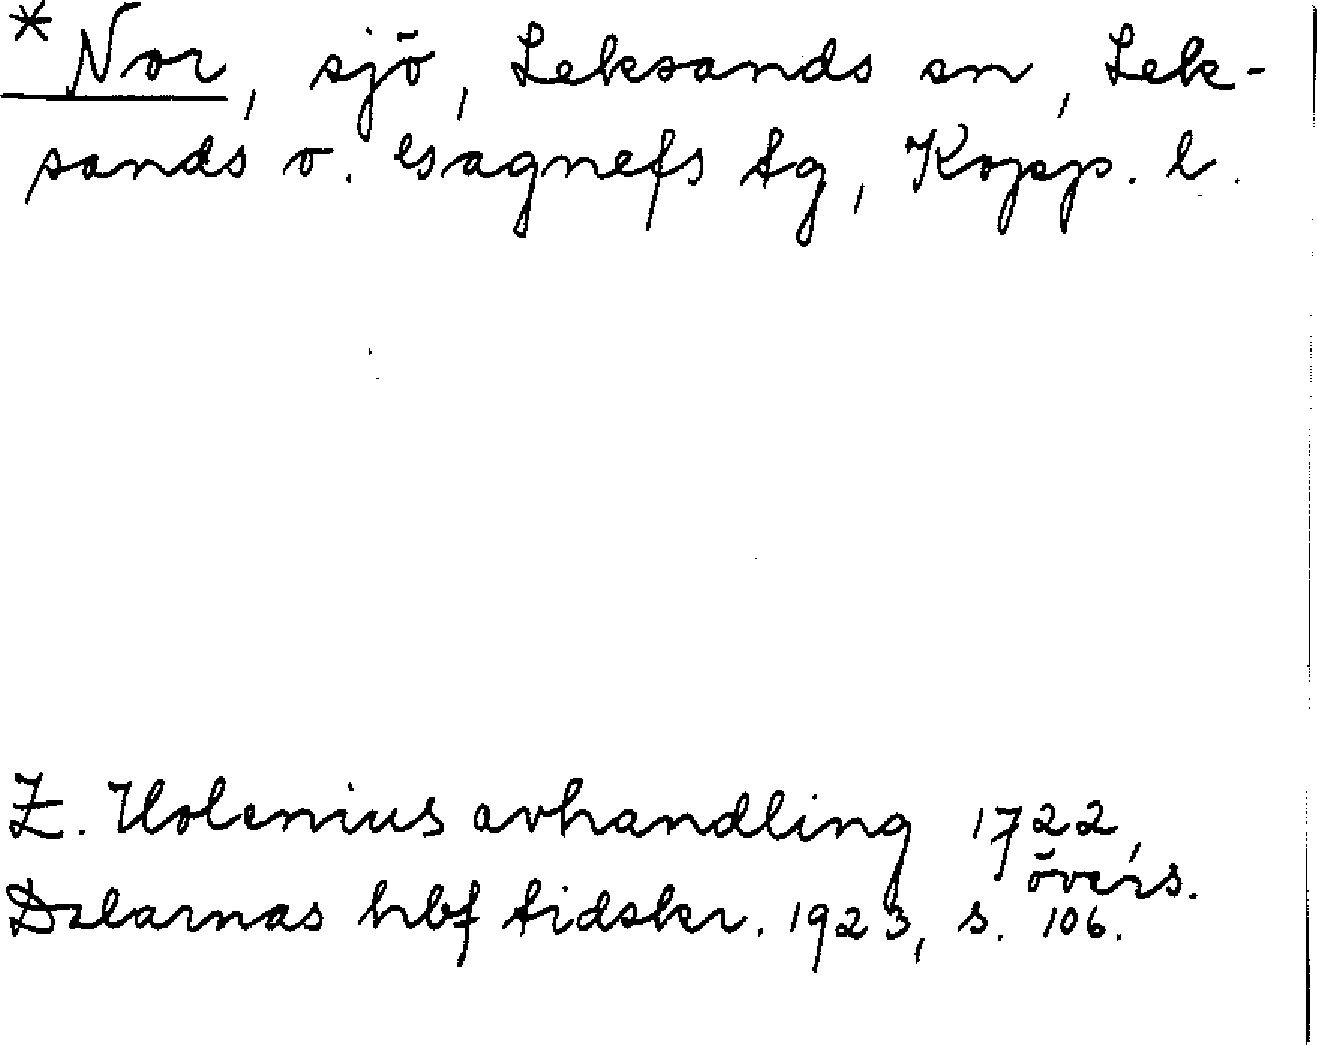 * Nor, sjö, Leksands sn, Lek-
sands o. Gagnefs tg, Kopp. l.
Z. Holenius avhandling 1722,
övers.
Dalarnas hbf tidskr. 1923, s. 106.